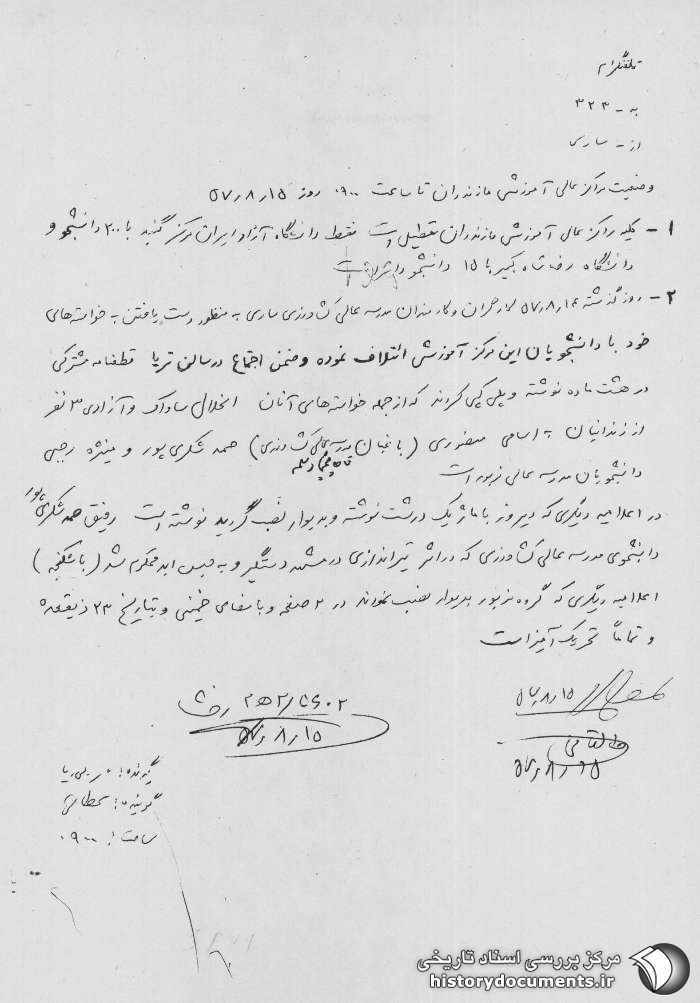 تلفنگرام
به - ۳۲۳
از - ساری
وضعیت مراکز عالی آموزشی مازندران تا ساعت ۰۹۰۰ روز ۵۷٫۸٫۱۵
۱ - کلیه مراکز عالی آموزشی مازندران تعطیل است فقط دانشگاه آزاد ایران مرکز گنبد با ۲۰۰ دانشجو و
دانشگاه رضا شاه کبیر با ۱۵ دانشجو دایر است
۲ - روز گذشته ۵۷٫۸٫۱۴ کارگران و کارمندان مدرسه عالی کشاورزی ساری به منظور دست یافتن به خواسته‌های
خود با دانشجویان این مرکز آموزشی ائتلاف نموده و ضمن اجتماع در سالن تریا قطعنامه مشترکی
در هشت ماده نوشته و پلی کپی کردند که از جمله خواسته‌های آنان انحلال ساواک و آزادی ۳ نفر
از زندانیان به اسامی منصوری (باغبان مدرسه عالی کشاورزی) صمد شکری پور و منیژه رجبی
دانشجویان مدرسه عالی مزبور است
در اعلامیه دیگری که دیروز با ماژیک درشت نوشته و بدیوار نصب گردید نوشته است رفیق صمد شکری پور
دانشجوی مدرسه عالی کشاورزی که در اثر تیراندازی در مشهد دستگیر و به حبس ابد محکوم شد (با شکنجه)
اعلامیه دیگری که گروه مزبور بدیوار نصب نمودند در ۲ صفحه و با امضای خمینی و بتاریخ ۲۳ ذیقعده
و تماماً تحریک آمیز است
۵۷٫۸٫۱۵
طالقانی
۵۷٫۸٫۱۵
۵۷٫۸٫۱۵
گیرنده:
گوینده:
ساعت: ۰۹۰۰
مرکز بررسی اسناد تاریخی
historydocuments.ir